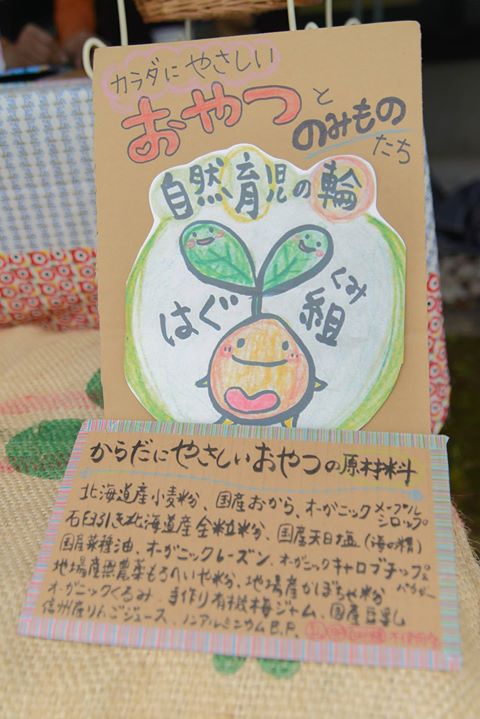 カラダにやさしい
おやつと
のみもの
たち
自然育児の輪
はぐ
くみ
組
からだにやさしいおやつの原材料
北海道産小麦粉、国産おから、オーガニックメープルシロップ
石臼引き北海道産全粒粉、国産天日塩(海の精)
国産菜種油、オーガニックレーズン、オーガニックキャロブチップ&パウダー
地場産無農薬もろへいや粉、地場産かぼちゃ粉
オーガニックくるみ、手作り有機梅ジャム、国産豆乳
信州産りんごジュース、ノンアルミニウムB.P.